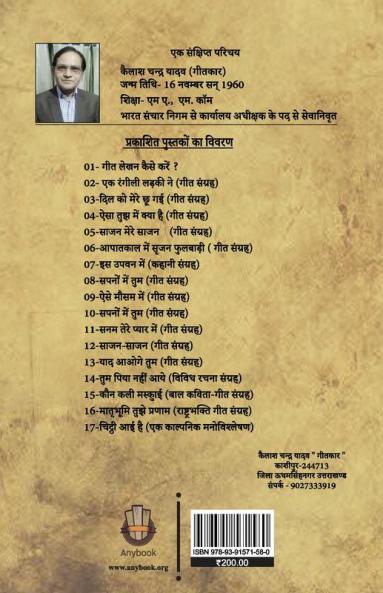 एक संक्षिप्त परिचय
कैलाश चन्द्र यादव (गीतकार)
जन्म तिथि- 16 नवम्बर सन् 1960
शिक्षा- एम ए., एम. कॉम
भारत संचार निगम से कार्यालय अधीक्षक के पद से सेवानिवृत
प्रकाशित पुस्तकों का विवरण
01- गीत लेखन कैसे करें ?
02- एक रंगीली लड़की ने (गीत संग्रह)
03-दिल को मेरे छू गई (गीत संग्रह)
04-ऐसा तुझ में क्या है (गीत संग्रह)
05-साजन मेरे साजन (गीत संग्रह)
06-आपातकाल में सृजन फुलबाड़ी ( गीत संग्रह)
07-इस उपवन में (कहानी संग्रह)
08-सपनों में तुम (गीत संग्रह)
09-ऐसे मौसम में (गीत संग्रह)
10-सपनों में तुम (गीत संग्रह)
11-सनम तेरे प्यार में (गीत संग्रह)
12-साजन-साजन (गीत संग्रह)
13-याद आओगे तुम (गीत संग्रह)
14-तुम पिया नहीं आये (विविध रचना संग्रह)
15-कौन कली मस्कुाई (बाल कविता-गीत संग्रह)
16-मातृभूमि तुझे प्रणाम (राष्ट्रभक्ति गीत संग्रह)
17-चिट्ठी आई है (एक काल्पनिक मनोविश्लेषण)
कैलाश चन्द्र यादव " गीतकार "
काशीपुर-244713
जिला ऊधमसिंहनगर उत्तराखण्ड
संपर्क - 9027333919
Anybook
www.anybook.org
ISBN 978-93-91571-58-0
₹200.00